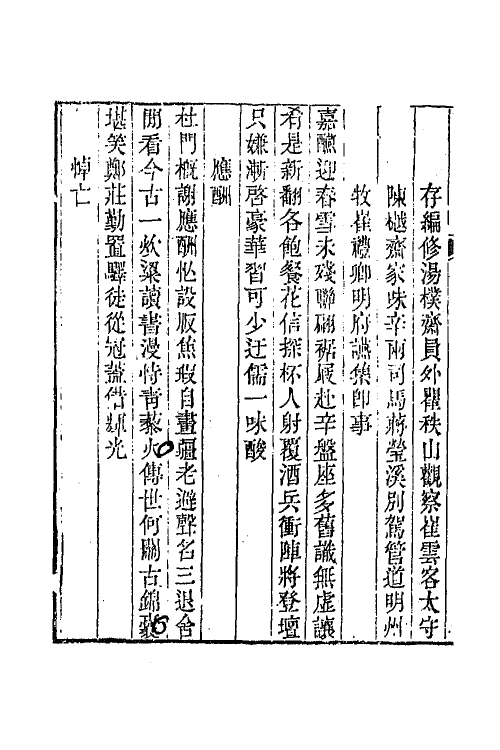 存編修湯樸齋員外瞿秩山觀察崔雲客太守
陳樾齋家味辛兩司馬蔣瑩溪別駕管道明州
牧崔禮卿明府讌集即事
嘉釀迎春雪未殘聯翩裾屐赴辛盤座多舊識無虛讓
肴是新翻各飽餐花信探杯人射覆酒兵衝陣將登壇
只嫌漸啓豪華習可少迂儒一味酸
應酬
杜門概謝應酬忙設版焦瑕自畫疆老避聲名三退舍
閒看今古一炊粱讀書漫恃青藜火傳世何關古錦囊
堪笑鄭莊勤置驛徒從冠蓋借輝光
悼亡